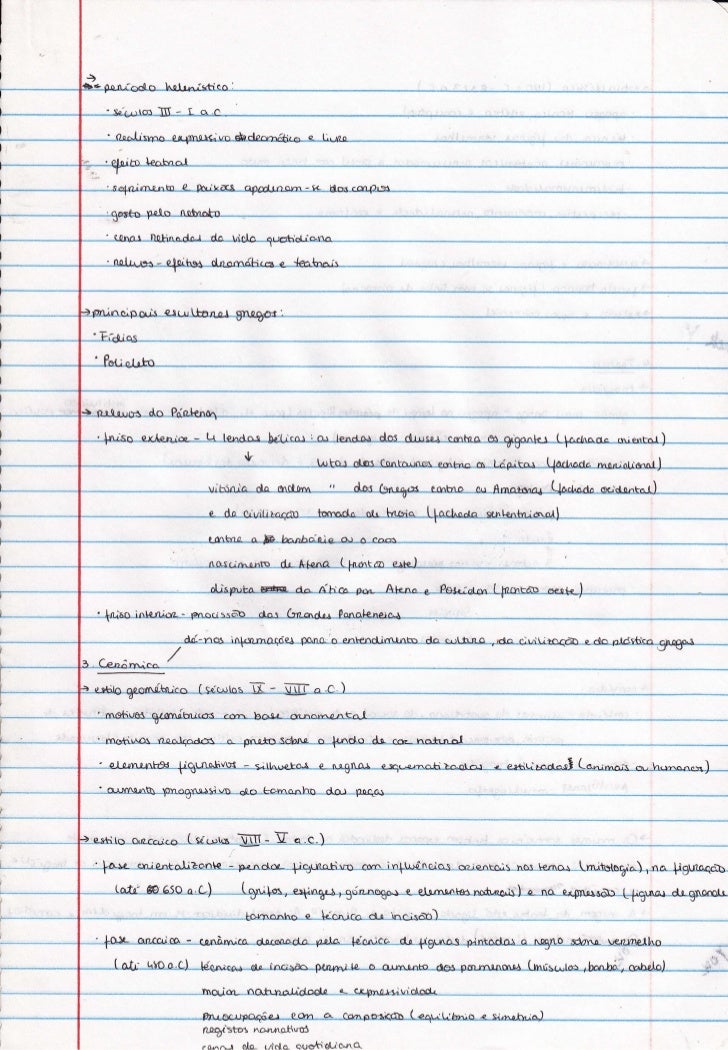 → período helenístico:
· séculos III - I a.C.
· realismo expressivo dramático e livre
· efeito teatral
· sofrimento e paixões apoderam-se dos corpos
· gosto pelo retrato
· cenas retiradas da vida quotidiana
· relevos - efeitos dramáticos e teatrais
→ principais escultores gregos:
· Fídias
· Policleto
→ relevos do Pártenon
· friso exterior - 4 lendas bélicas: as lendas dos deuses contra os gigantes (fachada oriental)
↓ lutas dos Centauros contra os Lápitas (fachada meridional)
vitória da ordem " dos Gregos contra as Amazonas (fachada ocidental)
e da civilização tomada de troia (fachada sententrional)
contra a barbárie ou o caos
nascimento de Atena (frontão este)
disputa da Ática por Atena e Poseidon (frontão oeste)
· friso interior - procissão das Grandes Panateneias
dá-nos informações para o entendimento da cultura, da civilização e da plástica gregas
3. Cerâmica
→ estilo geométrico (séculos IX - VIII a.C.)
· motivos geométricos com base ornamental
· motivos realçados a preto sobre o fundo de cor natural
· elementos figurativos - silhuetas e negras esquematizadas e estilizadas (animais ou humanos)
· aumento progressivo do tamanho das peças
→ estilo arcaico (séculos VIII - V a.C.)
· fase orientalizante - pendor figurativo com influências orientais nos temas (mitologia), na figuração
(até 650 a.C) (grifos, esfinges, górnogas e elementos naturais) e na expressão (figuras de grande
tamanho e técnica de incisão)
· fase arcaica - cerâmica decorada pela técnica de figuras pintadas a negro sobre vermelho
(até 480 a.C) técnicas de incisão permite o aumento dos pormenores (músculos, barba, cabelo)
maior naturalidade e expressividade
preocupações com a composição (equilíbrio e simetria)
registos narrativos
cenas da vida quotidiana